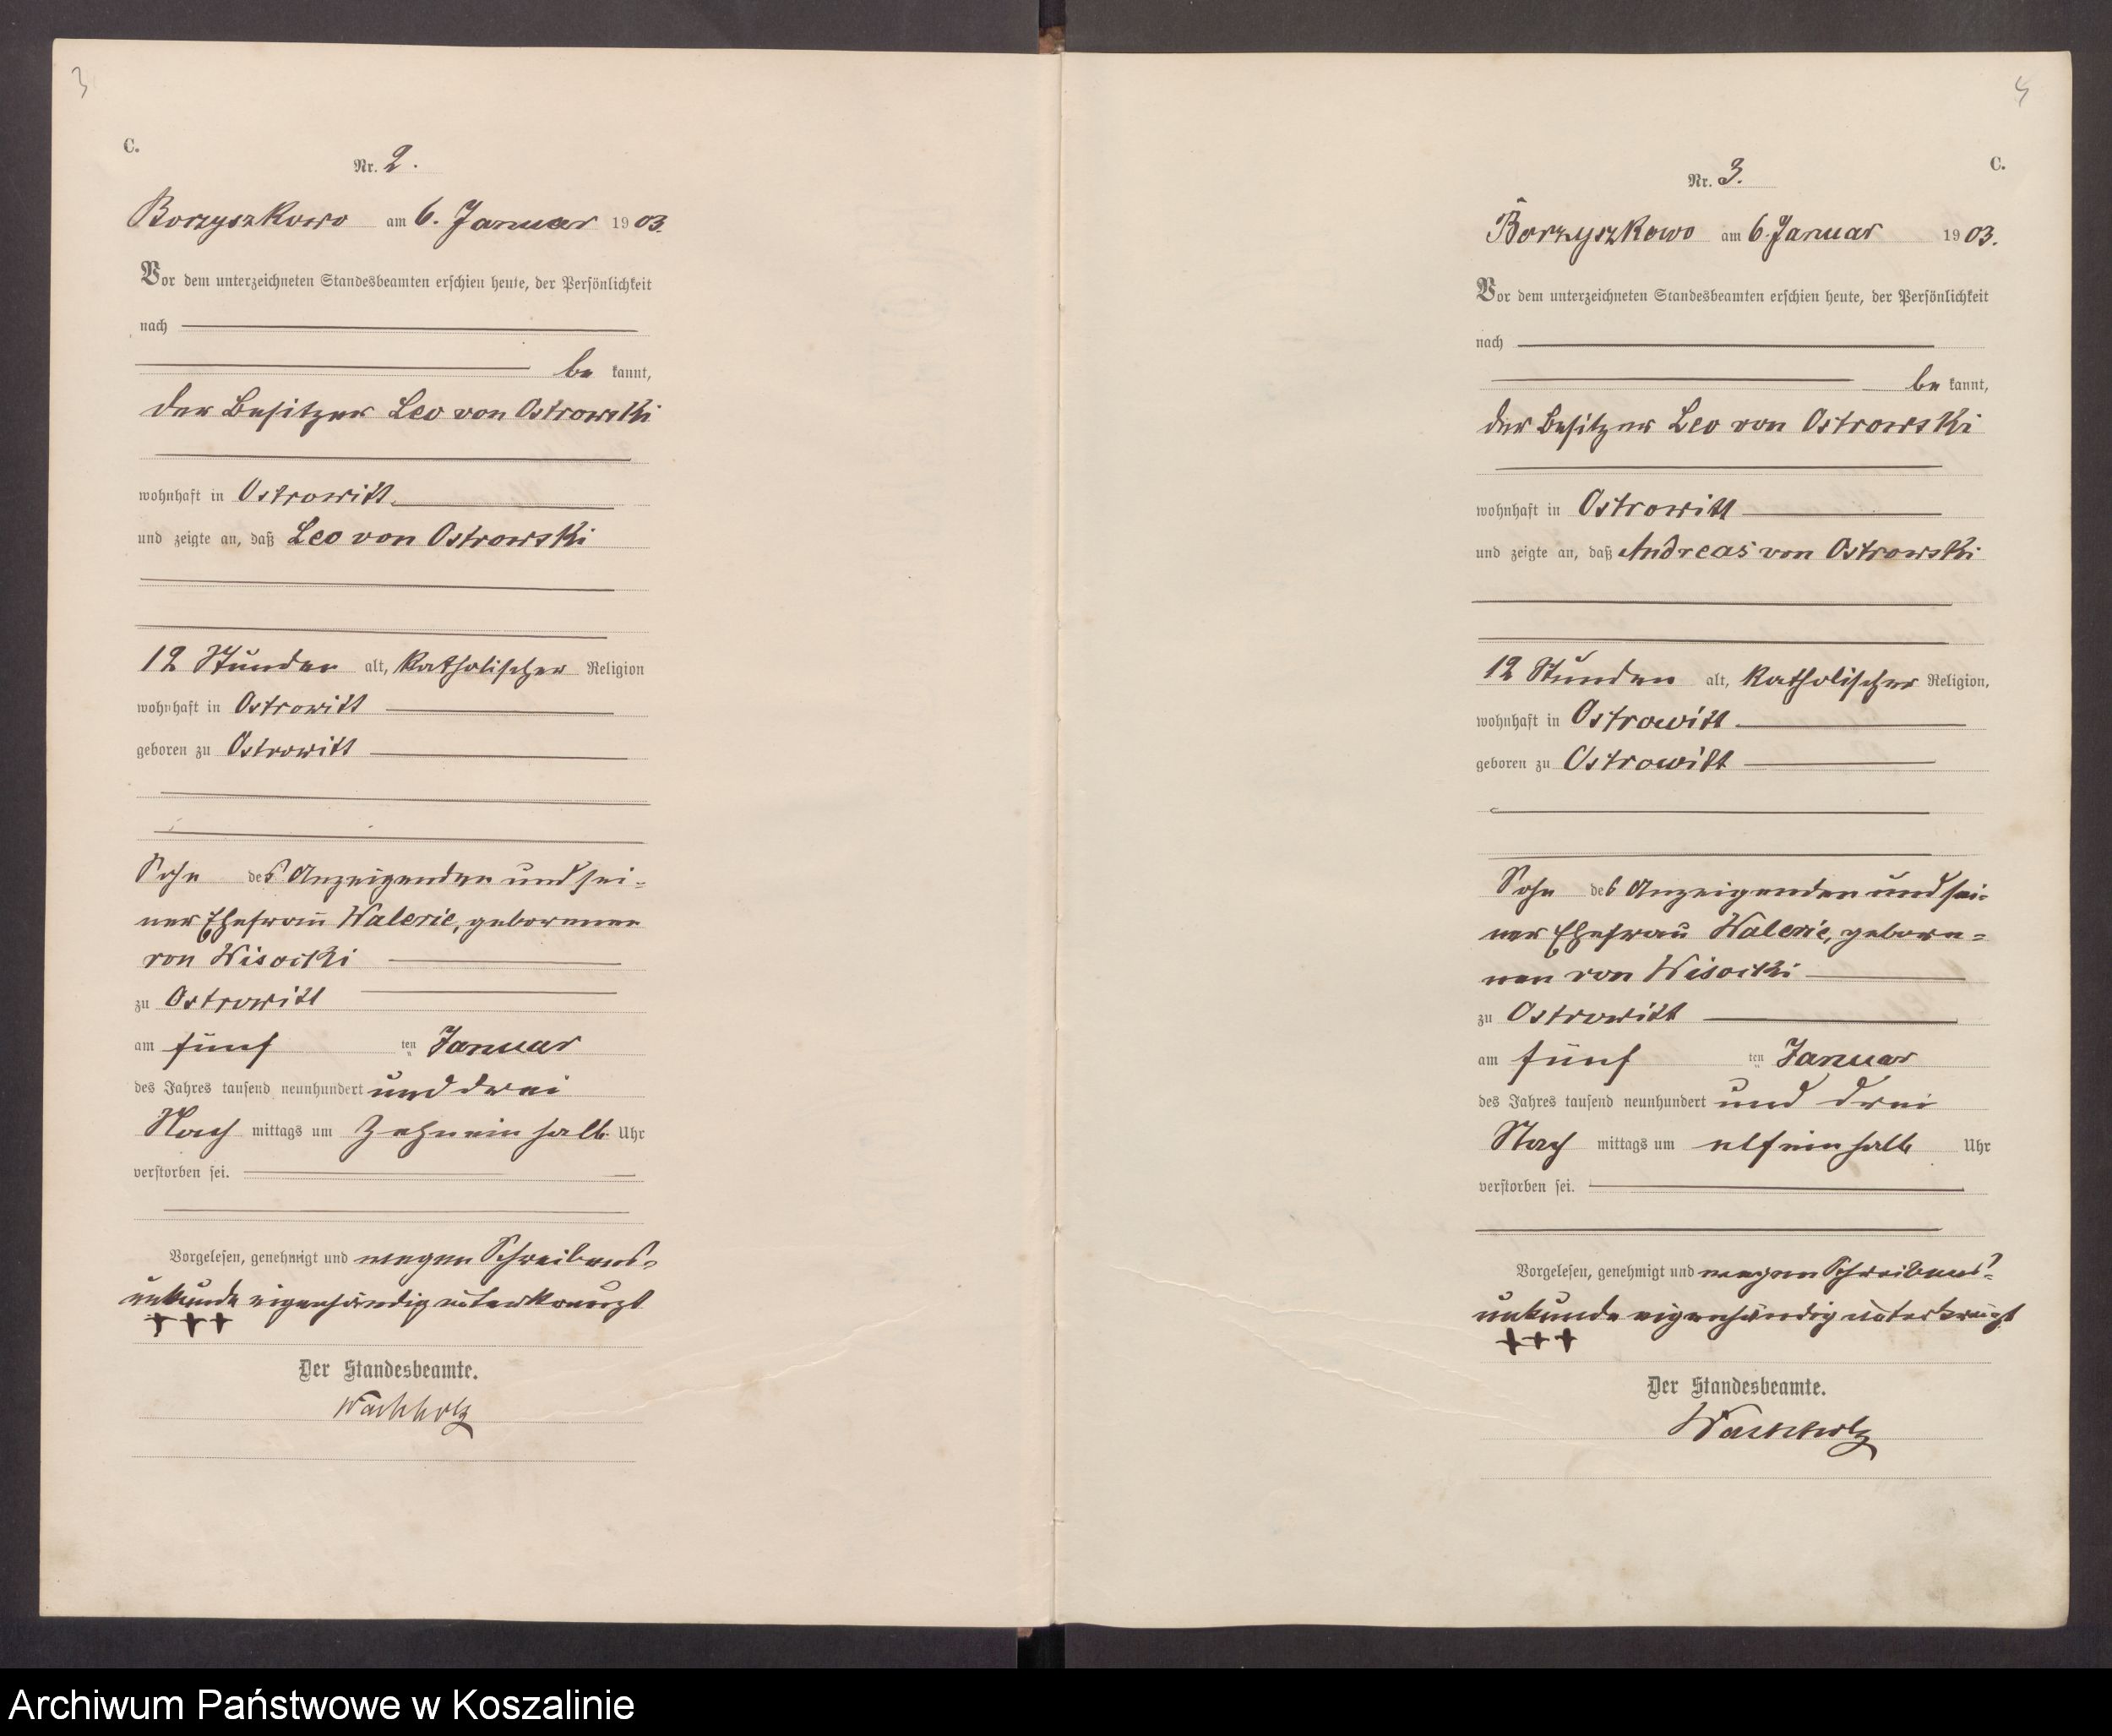 3
C.
Nr. 2.
Borzyszkowo am 6. Januar 1903.
Vor dem unterzeichneten Standesbeamten erschien heute, der Persönlichkeit
nach
be kannt,
der Besitzer Leo von Ostrowski
wohnhaft in Ostrowitt
und zeigte an, daß Leo von Ostrowski
12 Stunden alt, katholischer Religion
wohnhaft in Ostrowitt
geboren zu Ostrowitt
Sohn des Anzeigenden und sei-
ner Ehefrau Walerie, geborenen
von Wisocki
zu Ostrowitt
am fünf ten Januar
des Jahres tausend neunhundert und drei
Nach mittags um zehneinhalb Uhr
verstorben sei.
Vorgelesen, genehmigt und wegen Schreibens-
unkunde eigenhändig unterkreuzt
+++
Der Standesbeamte.
Wachholz
4
C.
Nr. 3.
Borzyszkowo am 6. Januar 1903.
Vor dem unterzeichneten Standesbeamten erschien heute, der Persönlichkeit
nach
be kannt,
der Besitzer Leo von Ostrowski
wohnhaft in Ostrowitt
und zeigte an, daß Andreas von Ostrowski
12 Stunden alt, katholischer Religion,
wohnhaft in Ostrowitt
geboren zu Ostrowitt
Sohn des Anzeigenden und sei-
ner Ehefrau Walerie, gebore-
nen von Wisocki
zu Ostrowitt
am fünf ten Januar
des Jahres tausend neunhundert und drei
Nach mittags um elfeinhalb Uhr
verstorben sei.
Vorgelesen, genehmigt und wegen Schreibens-
unkunde eigenhändig unterkreuzt
+++
Der Standesbeamte.
Wachholz
Archiwum Państwowe w Koszalinie